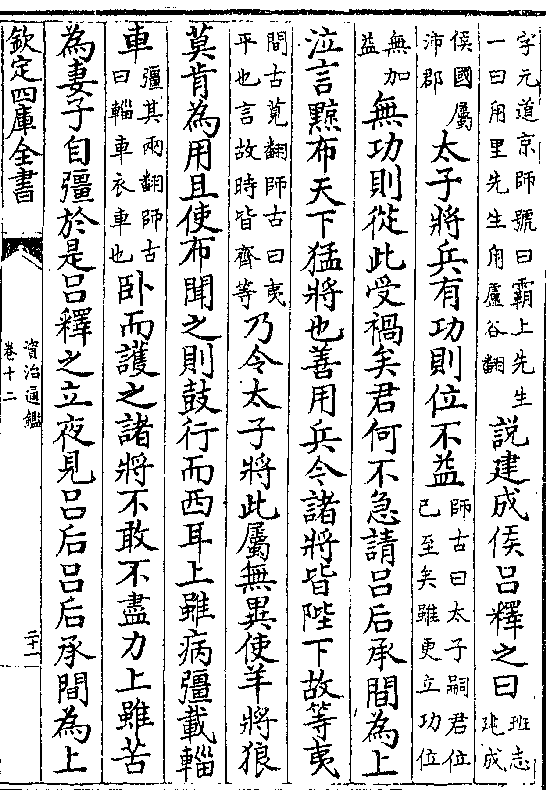 字元道京師號曰霸上先生
一曰甪里先生甪盧谷翻
說建成侯呂釋之曰
班志
建成
侯國屬
沛郡
太子將兵有功則位不益
師古曰太子嗣君位
已至矣雖更立功位
無加
益
無功則從此受禍矣君何不急請呂后承間為上
泣言黥布天下猛將也善用兵今諸將皆陛下故等夷
間古莧翻師古曰夷
平也言故時皆齊等
乃令太子將此屬無異使羊將狼
莫肯為用且使布聞之則鼓行而西耳上雖病彊載輜
車
彊其兩翻師古
曰輜車衣車也
卧而護之諸將不敢不盡力上雖苦
為妻子自彊於是呂釋之立夜見呂后呂后承間為上
欽定四庫全書
資治通鑑
卷十二
二十一